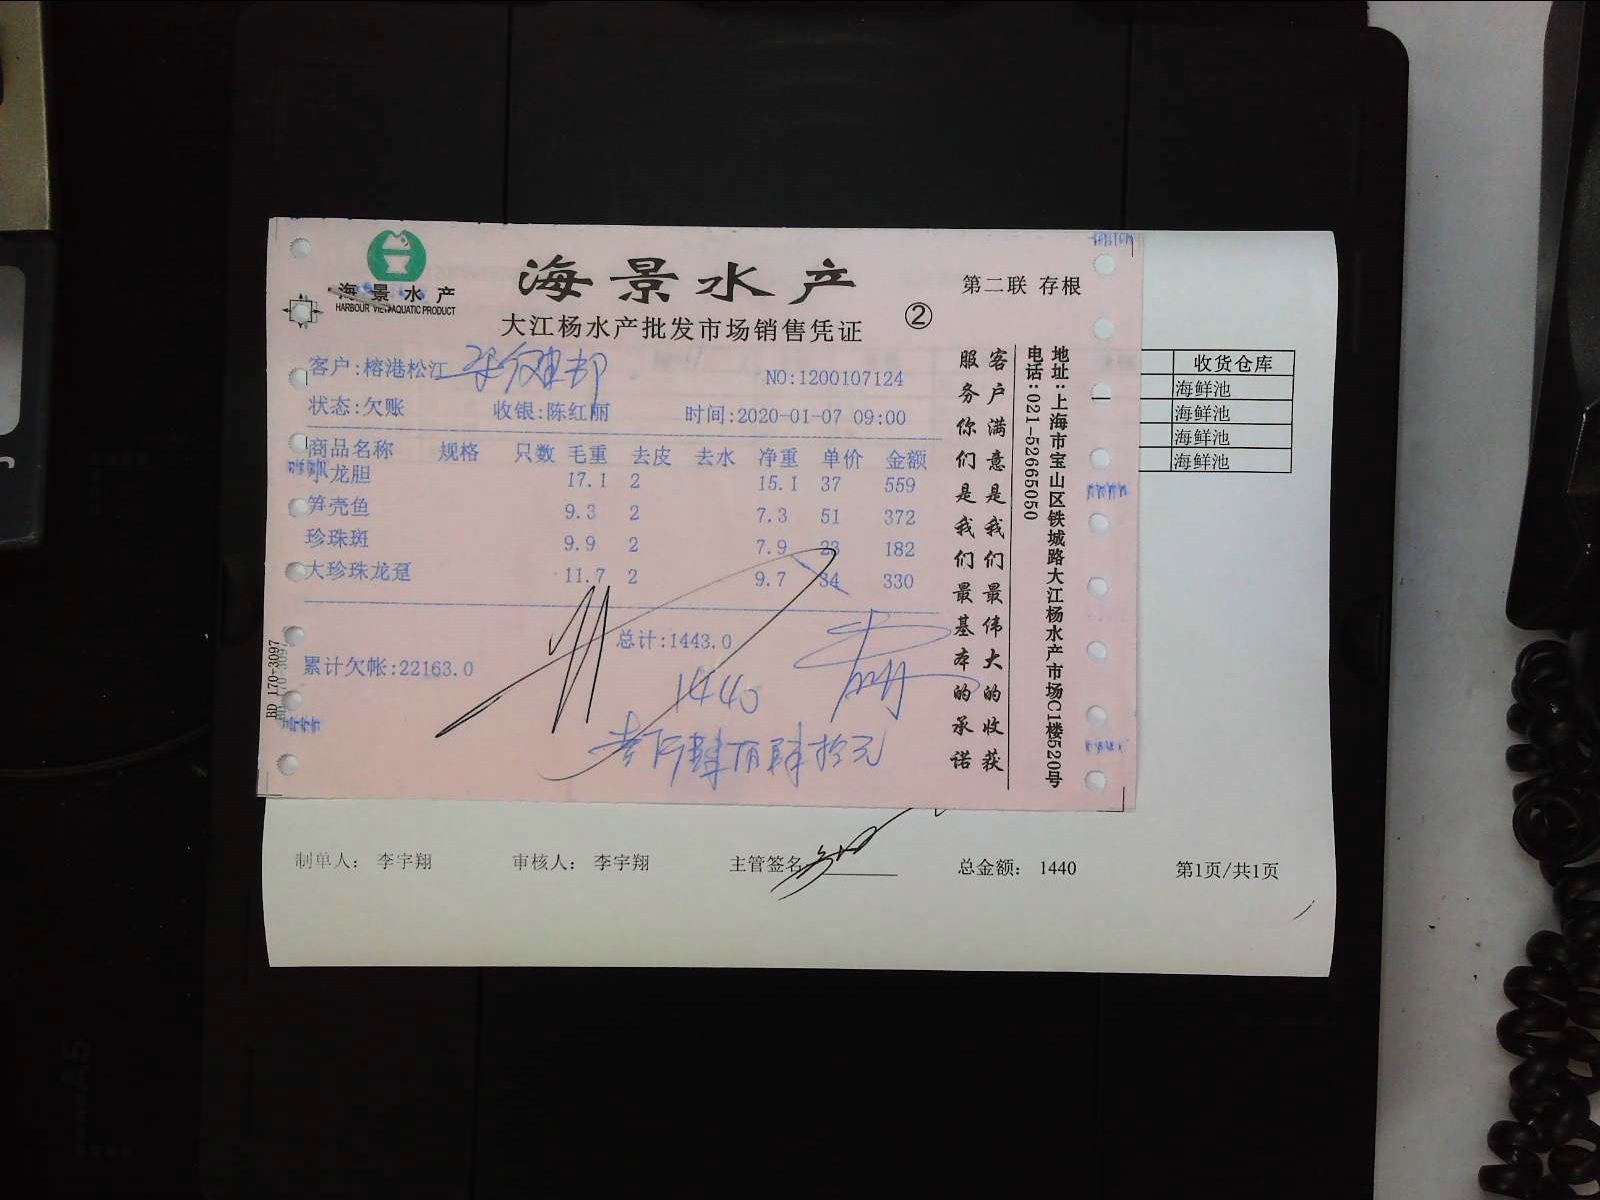 海景水产
HARBOUR VIEW AQUATIC PRODUCT
海景水产
大江杨水产批发市场销售凭证
②
第二联 存根
客户:榕港松江
NO:1200107124
状态:欠账 收银:陈红丽 时间:2020-01-07 09:00
商品名称 规格 只数 毛重 去皮 去水 净重 单价 金额
水龙胆 17.1 2 15.1 37 559
笋壳鱼 9.3 2 7.3 51 372
珍珠斑 9.9 2 7.9 23 182
大珍珠龙趸 11.7 2 9.7 34 330
总计:1443.0
累计欠帐:22163.0
1440
壹仟肆佰肆拾元
客户满意是我们最伟大的收获
服务你们是我们最基本的承诺
地址:上海市宝山区铁城路大江杨水产市场C1楼520号
电话:021-52665050
BD 170-3097
收货仓库
海鲜池
海鲜池
海鲜池
海鲜池
制单人: 李宇翔 审核人: 李宇翔 主管签名 总金额: 1440 第1页/共1页